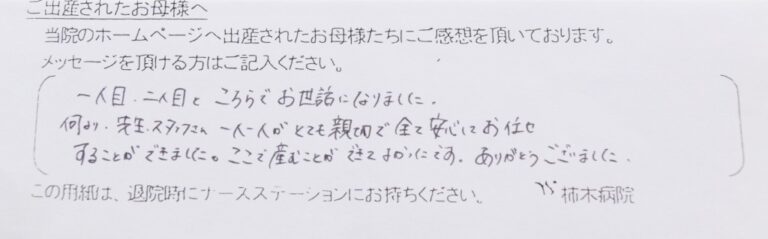 ご出産されたお母様へ
当院のホームページへ出産されたお母様たちにご感想を頂いております。
メッセージを頂ける方はご記入ください。
一人目、二人目と こちらで お世話になりました。
何より、先生、スタッフさん 一人一人が とても親切で 全て 安心して お任せ
することができました。ここで産むことが できて よかったです。ありがとうございました。
この用紙は、退院時にナースステーションにお持ちください。 柿木病院